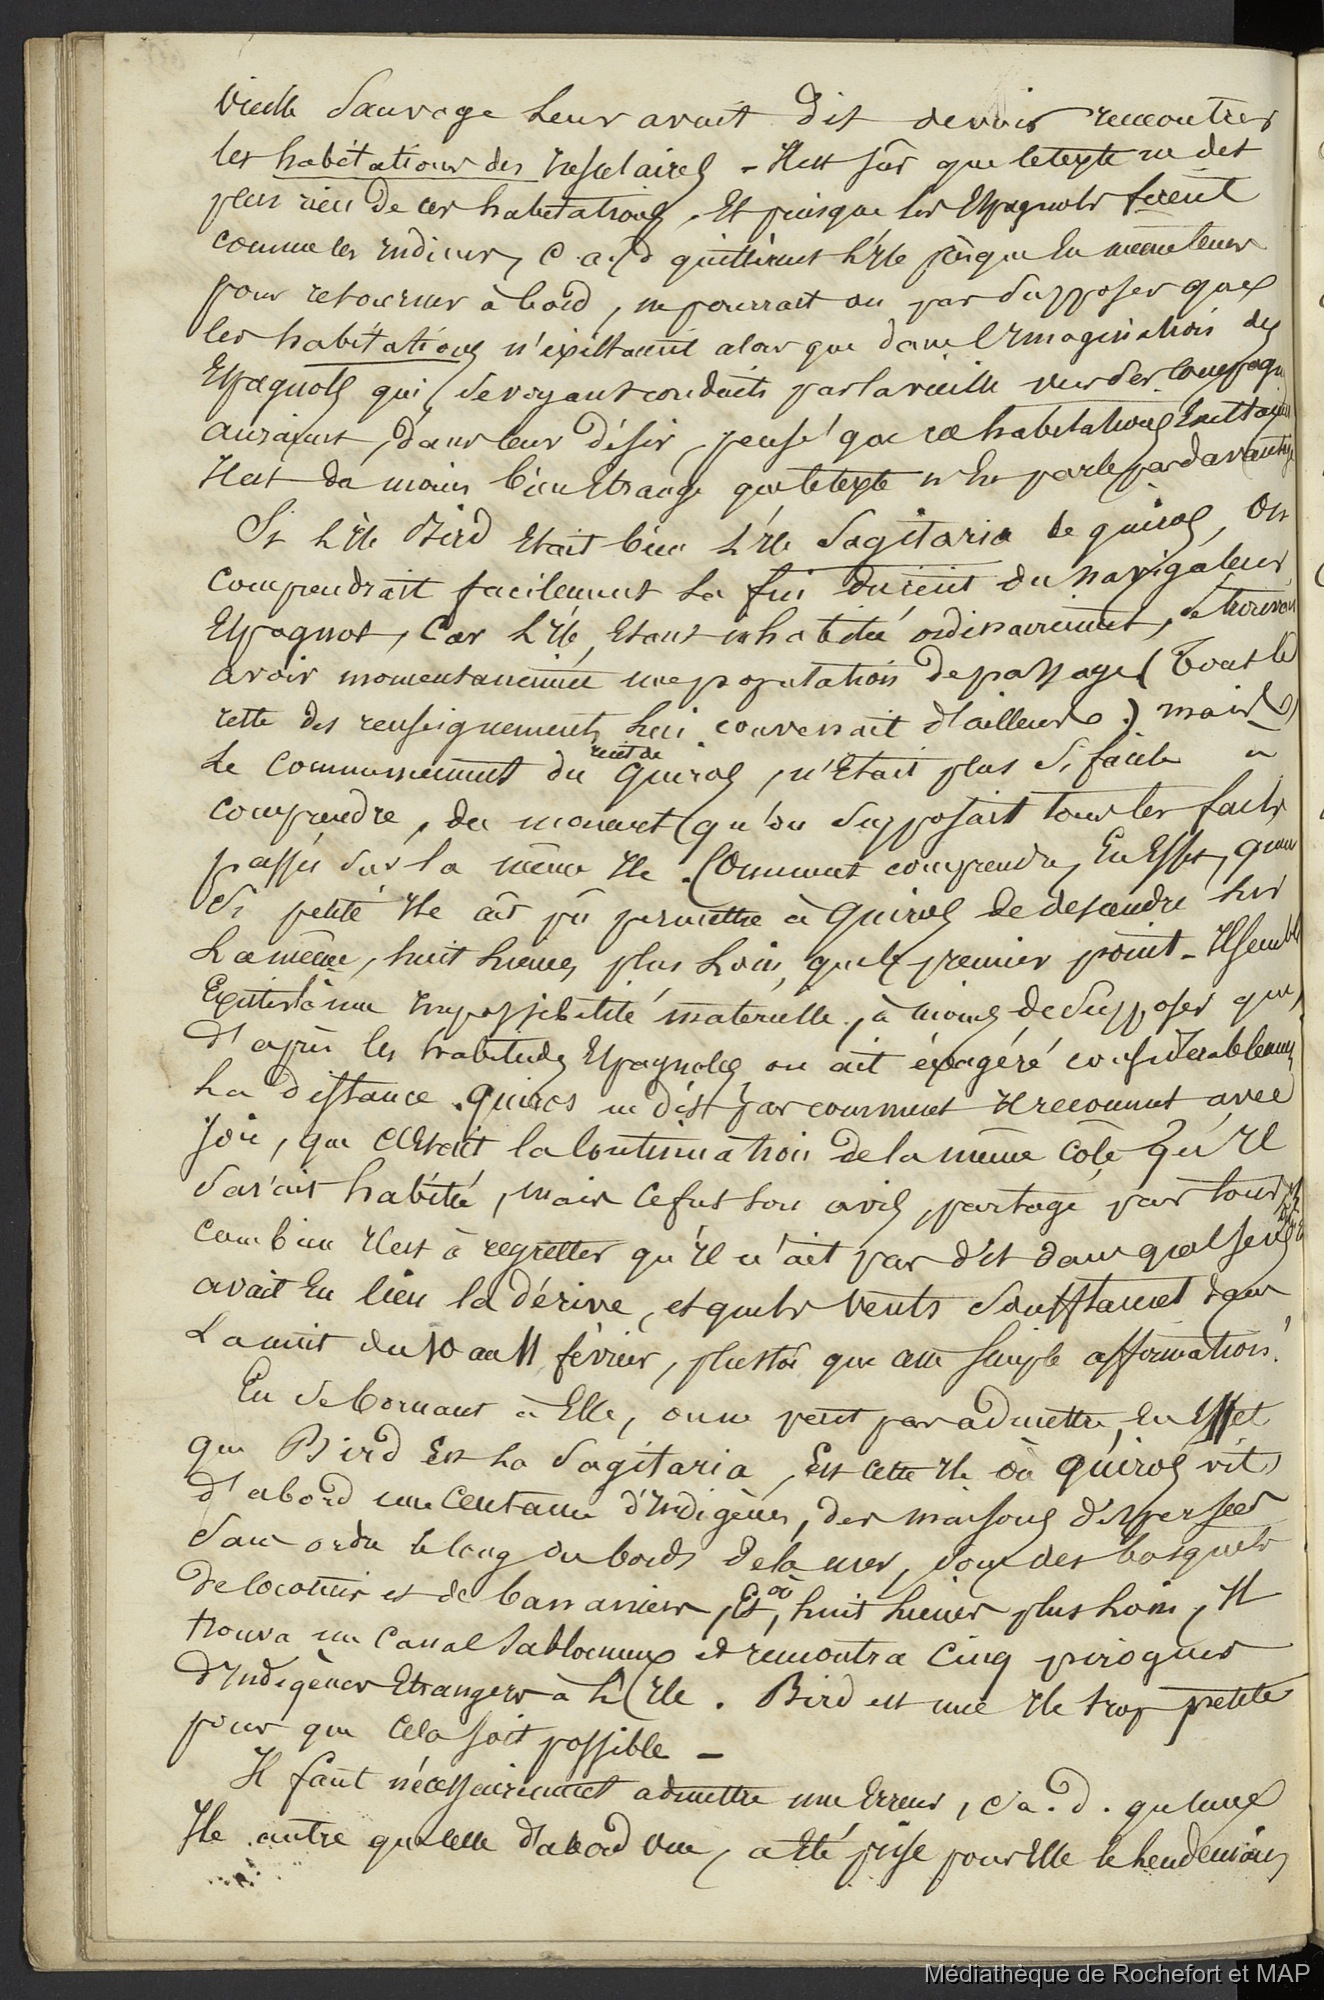 vieille Sauvage leur avait dit devoir rencontrer
les habitations des Insulaires - Il est sûr que le texte ne dit
plus rien de ces habitations, Et puisque les Espagnols firent
comme les Indiens, c. a. d quittèrent l'Ile presque en même tems
pour retourner à bord, ne pourrait on pas supposer que
les habitations n'existaient alors que dans l'Imagination des
Espagnols qui, se voyant conduits par la vieille vers des
auraient, dans leur désir, pensé que ces habitations Existaient
Il est du moins bien Etrange que le texte n'en parle pas davantage
Si l'Ile Bird Etait bien l'Ile Sagitaria de quiros, on
comprendrait facilement la fin du récit du navigateur
Espagnol, Car l'Ile, Etant inhabitée ordinairement, se trouvait
avoir momentanément une population de passage (Tout le
reste des renseignements lui convenait d'ailleurs.) mais
le commencement du récit de Quiros, n'Etait plus si facile à
comprendre, du moment qu'on supposait tous les faits
passés sur la même Ile. Comment comprendre, En Effet, qu'une
si petite Ile ait pû permettre à Quiros de descendre sur
la même, huit lieues plus loin, que le premier point - Il semble
Exister là une Impossibilité matérielle, à moins de supposer que,
d'après les habitudes Espagnoles, on ait éxagéré considérablement
la distance. Quiros ne dit pas comment Il reconnut avec
joie, que c'Etait la Continuation de la même côte qu'Il
savait habitée, mais ce fut son avis, partagé par tous
combien Il est à regretter qu'Il n'ait pas dit dans quel sens
avait Eu lieu la dérive, et quels vents soufflaient dans
la nuit du 10 au 11 février, plustôt que cette simple affirmation.
En se bornant à Elle, on ne peut pas admettre, En Effet
que Bird Est la Sagitaria, Est cette Ile où Quiros vit
d'abord une Centaine d'Indigènes, des maisons dispersées
sans ordre le long du bord de la mer, sous des bosquets
de cocotiers et de bananiers, Et où, huit lieues plus loin, Il
trouva un canal sablonneux et rencontra Cinq pirogues
d'Indigènes Etrangers à l'Ile. Bird est une Ile trop petite
pour que cela soit possible -
Il faut nécessairement admettre une Erreur, c. a. d. qu'une
Ile autre que celle d'abord vue, a Eté prise pour Elle le lendemain,
Médiathèque de Rochefort et MAP